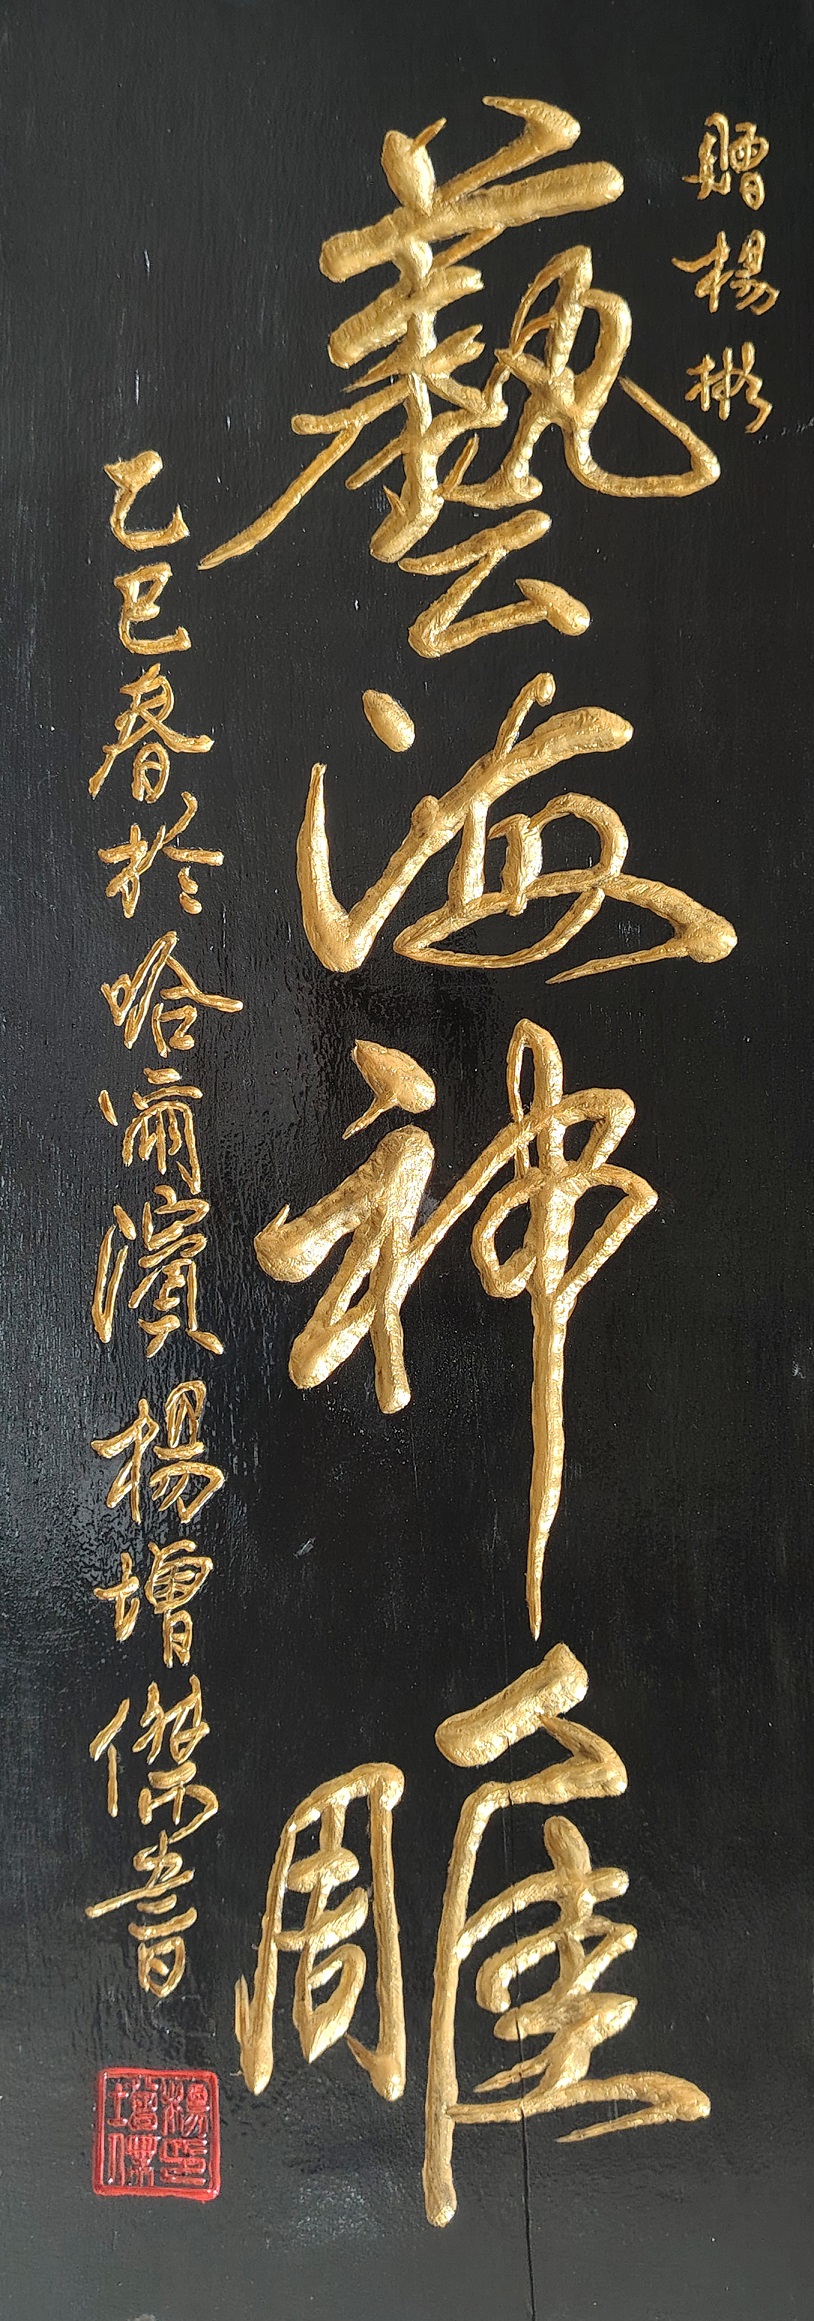 贈楊彬
藝海神雕
乙巳春於哈爾濱楊增傑書
楊增傑印